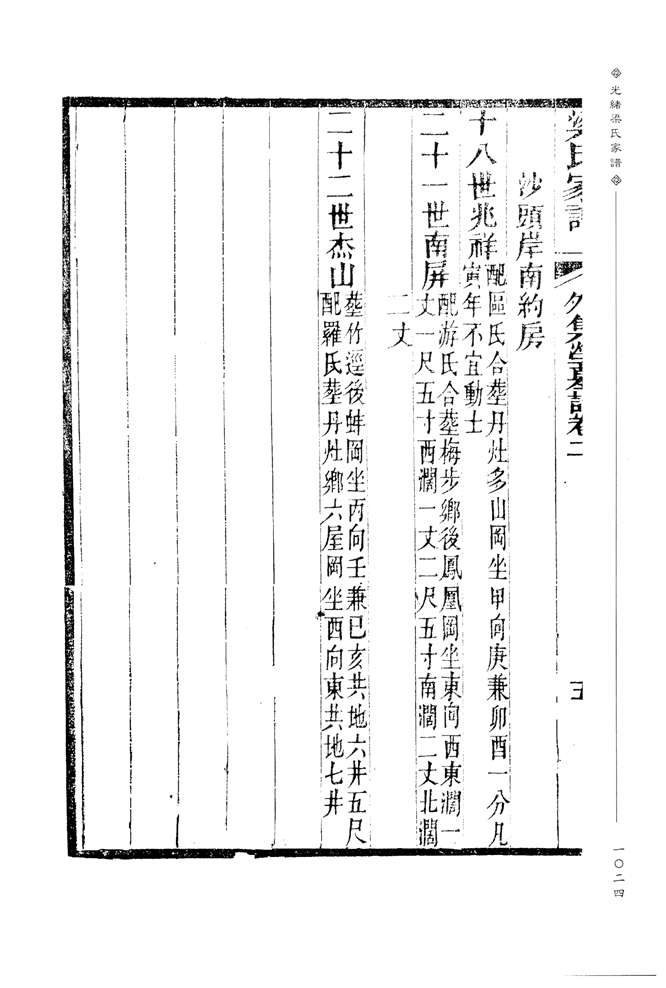 光緒梁氏家譜
一〇二四
梁氏家譜 外集塋墓譜卷二 五
沙頭岸南約房
十八世兆祥配區氏合塟丹灶多山岡坐甲向庚兼卯酉一分凡
寅年不宜動土
二十一世南屏配游氏合塟梅步鄉後鳳凰岡坐東向西東濶一
丈一尺五寸西濶一丈二尺五寸南濶二丈北濶
二丈
二十二世杰山塟竹逕後蚌岡坐丙向壬兼巳亥共地六井五尺
配羅氏塟丹灶鄉六屋岡坐西向東共地七井